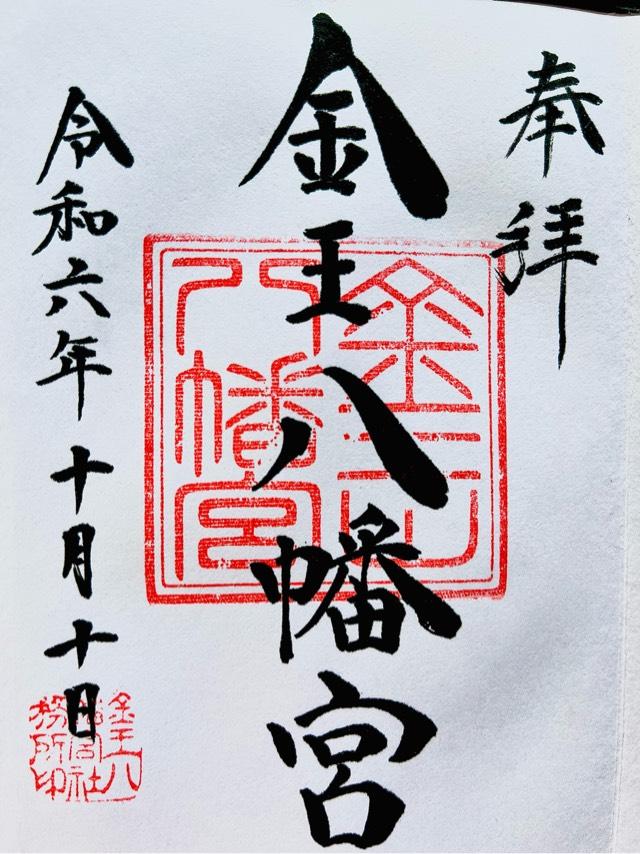 奉拝
金王八幡宮
令和六年十月十日
金王八幡宮
金王八幡宮社務所印